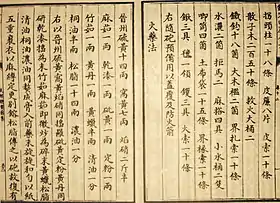 皮簾八片 皮索一十條
散子木二百五十條 救火大桶二
鐵鉤十八箇 大木檻二箇 界扎索一十條
水濃二箇 拒馬二 麻搭四具 小水桶二隻
唧筒四箇 土布袋一十五條 界椽索一十條
鍬三具 鍤一領 钁三具 火索一十條
右隨砲預備用以蓋覆及防火箭
火藥法
晉州硫黃十四兩 窩黃七兩 焰硝二斤半
麻茹一兩 乾漆一兩 砒黃一兩 定粉一兩
竹茹一兩 黃丹一兩 黃蠟半兩 清油一分
桐油半兩 松脂一十四兩 濃油一分
右以晉州硫黃窩黃焰硝同搗羅砒黃定粉黃丹同
研乾漆搗為末竹茹麻茹即微炒為碎末黃蠟松脂
清油桐油濃油同熬成膏入前藥末旋旋和勻以紙
五重裹衣以麻縛定更別鎔松脂傅之以砲放復有